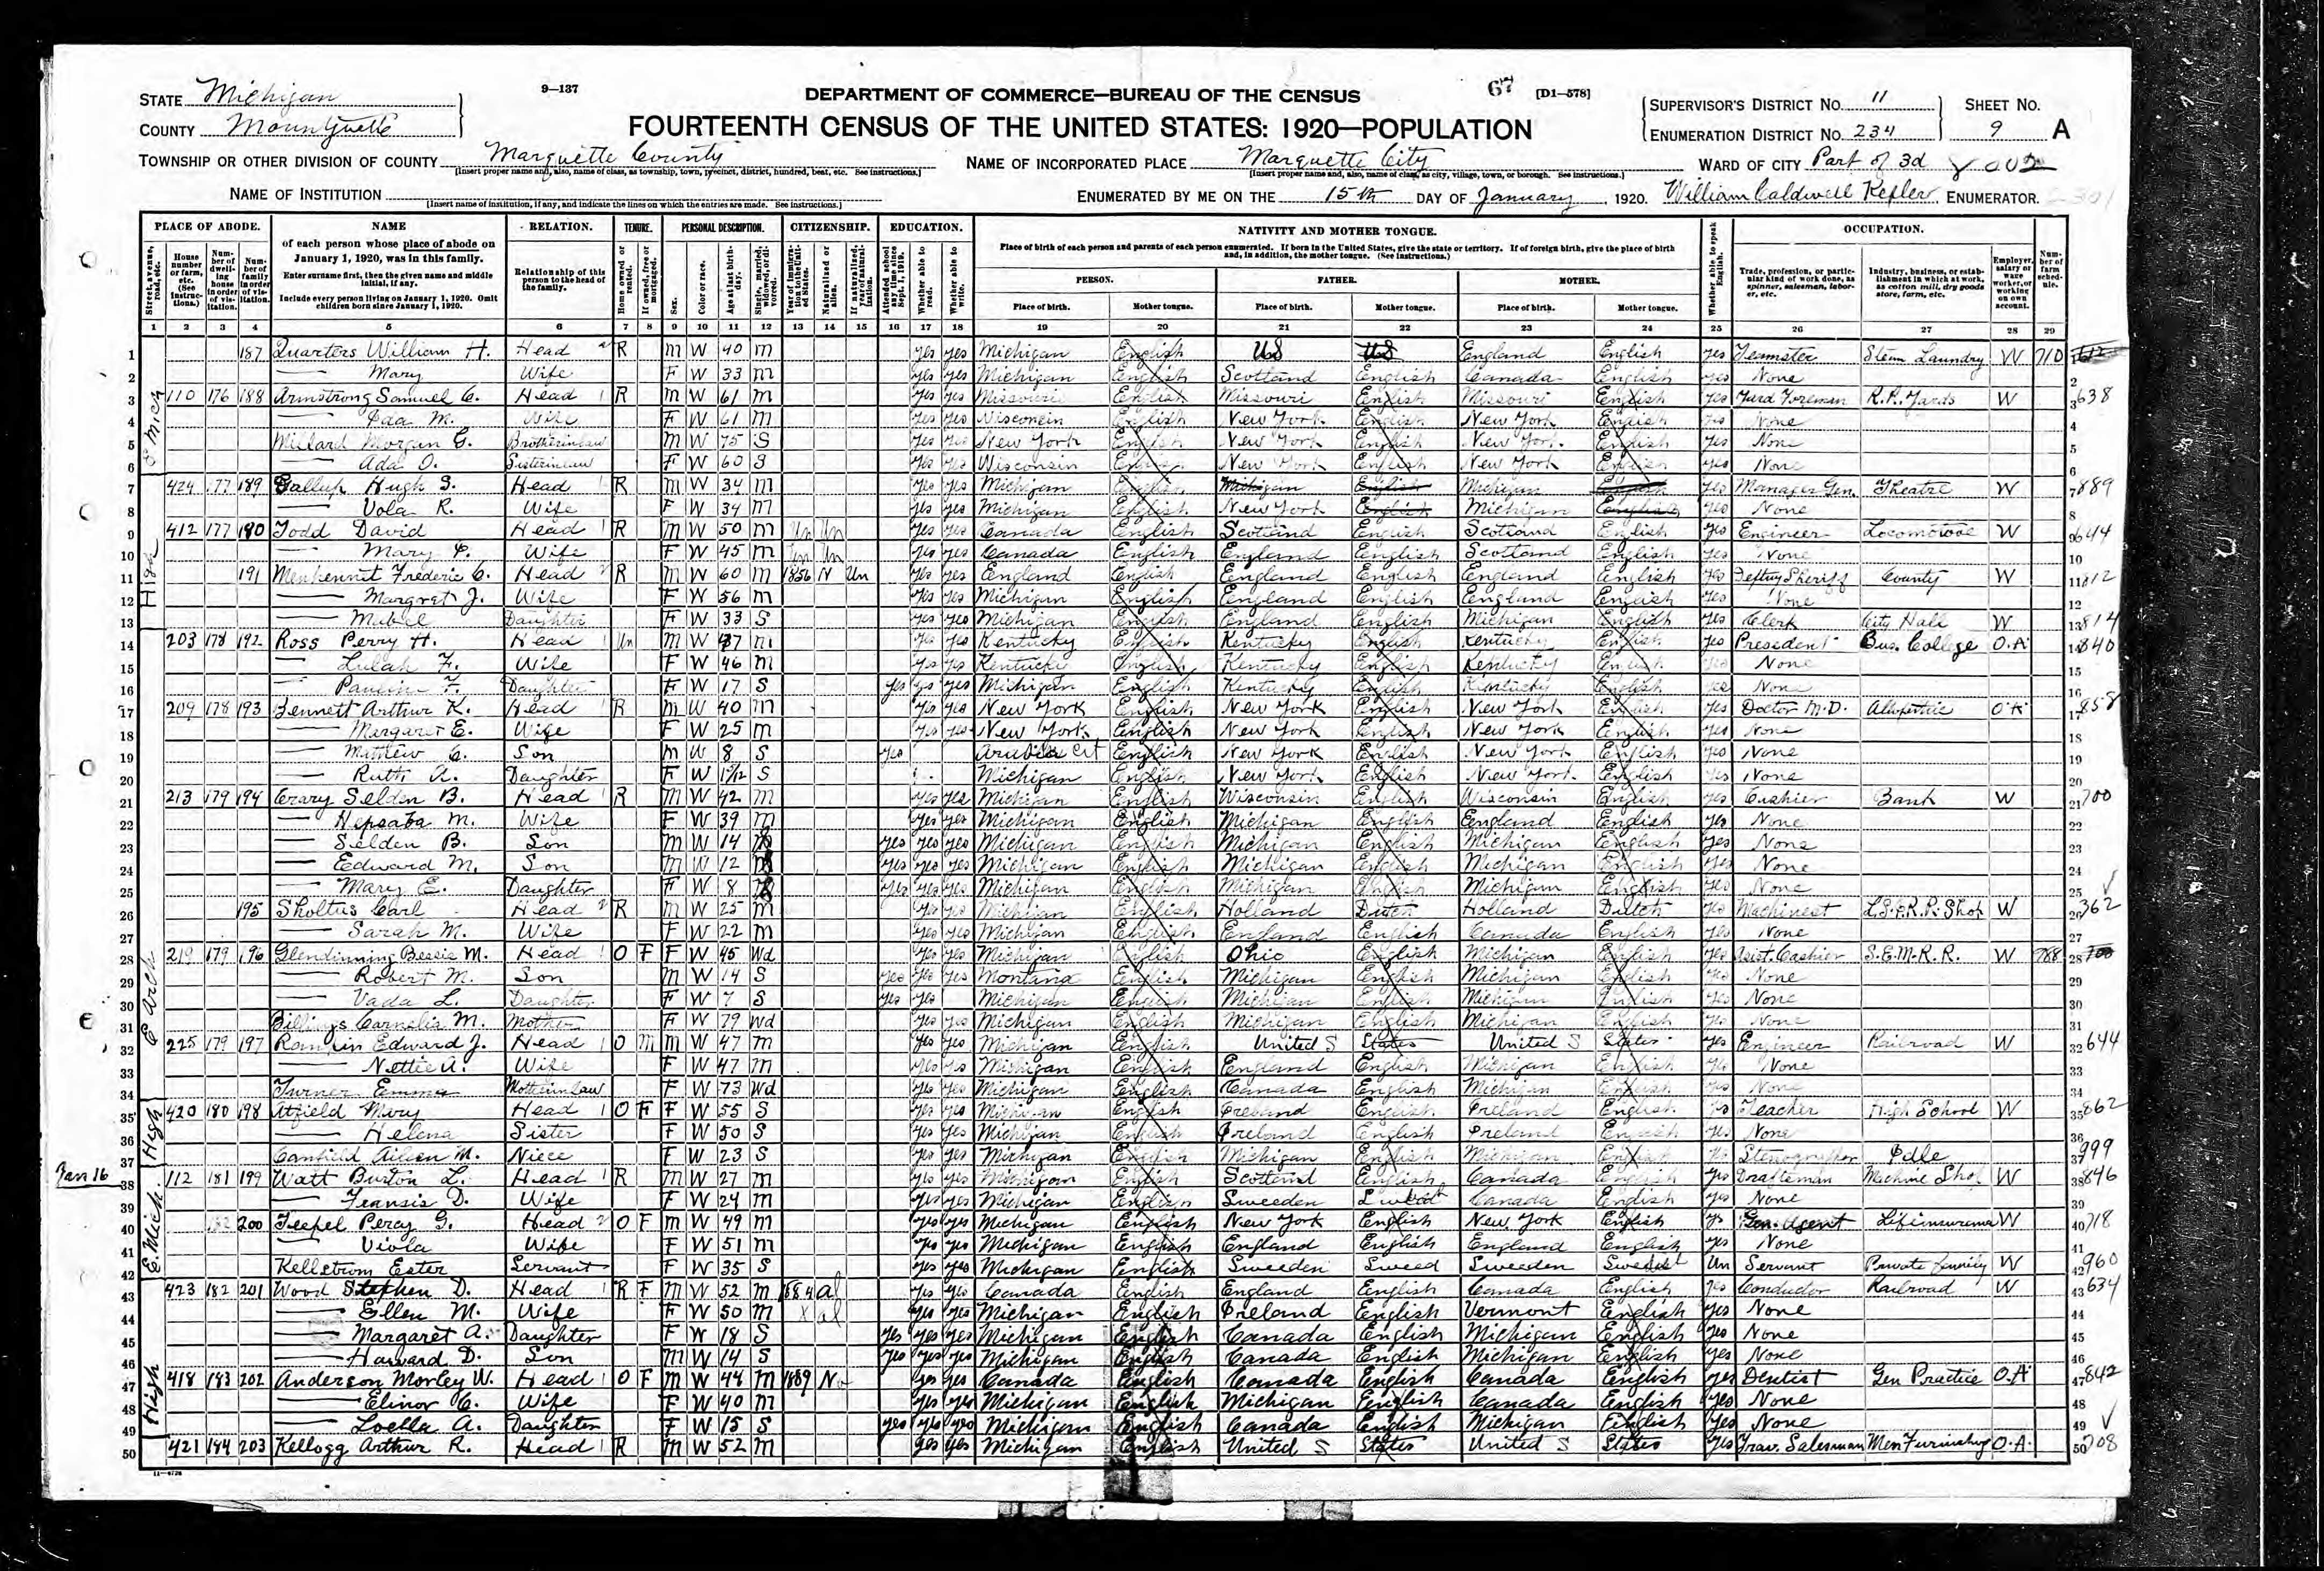 STATE Michigan
9—137
DEPARTMENT OF COMMERCE—BUREAU OF THE CENSUS
67 [D1—578]
SUPERVISOR'S DISTRICT NO. 11 SHEET NO.
COUNTY
FOURTEENTH CENSUS OF THE UNITED STATES: 1920—POPULATION
ENUMERATION DISTRICT NO. 234 9 A
TOWNSHIP OR OTHER DIVISION OF COUNTY Marquette County NAME OF INCORPORATED PLACE Marquette City WARD OF CITY Part of 3d
[Insert proper name and, also, name of class, as township, town, precinct, district, hundred, beat, etc. See instructions.] [Insert proper name and, also, name of class, as city, village, town, or borough. See instructions.]
NAME OF INSTITUTION ENUMERATED BY ME ON THE 15th DAY OF January, 1920. William Caldwell Kepler, ENUMERATOR.
[Insert name of institution, if any, and indicate the lines on which the entries are made. See instructions.]
PLACE OF ABODE. NAME RELATION. TENURE. PERSONAL DESCRIPTION. CITIZENSHIP. EDUCATION. NATIVITY AND MOTHER TONGUE. OCCUPATION.
of each person whose place of abode on January 1, 1920, was in this family.
Enter surname first, then the given name and middle initial, if any.
Include every person living on January 1, 1920. Omit children born since January 1, 1920.
Relationship of this person to the head of the family.
Place of birth of each person and parents of each person enumerated. If born in the United States, give the state or territory. If of foreign birth, give the place of birth and, in addition, the mother tongue. (See instructions.)
PERSON. FATHER. MOTHER.
Place of birth. Mother tongue. Place of birth. Mother tongue. Place of birth. Mother tongue.
1 2 3 4 5 6 7 8 9 10 11 12 13 14 15 16 17 18 19 20 21 22 23 24 25 26 27 28 29
1 187 Quarters William H. Head R M W 40 M yes yes Michigan English US US England English yes Teamster Steam Laundry W 710
2 Mary Wife F W 33 M yes yes Michigan English Scotland English Canada English yes None
3 110 176 188 Armstrong Samuel C. Head R M W 61 M yes yes Missouri English Missouri English Missouri English yes Yard Foreman R.R. Yards W 638
4 Ida M. Wife F W 61 M yes yes Wisconsin English New York English New York English yes None
5 Millard Morgan G. Brotherinlaw M W 75 S yes yes New York English New York English New York English yes None
6 Ada O. Sisterinlaw F W 60 S yes yes Wisconsin English New York English New York English yes None
7 424 177 189 Gallup Hugh S. Head R M W 34 M yes yes Michigan English Michigan English Michigan English yes Manager Gen. Theatre W 889
8 Vola R. Wife F W 34 M yes yes Michigan English New York English Michigan English yes None
9 412 177 190 Todd David Head R M W 50 M Un Un yes yes Canada English Scotland English Scotland English yes Engineer Locomotive W 644
10 Mary P. Wife F W 45 M Un Un yes yes Canada English England English Scotland English yes None
11 191 Menhennit Frederic C. Head R M W 60 M 1856 N Un yes yes England English England English England English yes Deputy Sheriff County W 812
12 Margret J. Wife F W 56 M yes yes Michigan English England English England English yes None
13 Mabel Daughter F W 33 S yes yes Michigan English England English Michigan English yes Clerk City Hall W 814
14 203 178 192 Ross Perry H. Head Un M W 47 M yes yes Kentucky English Kentucky English Kentucky English yes President Bus. College O.A. 840
15 Lulah F. Wife F W 46 M yes yes Kentucky English Kentucky English Kentucky English yes None
16 Pauline F. Daughter F W 17 S yes yes yes Michigan English Kentucky English Kentucky English yes None
17 209 178 193 Bennett Arthur K. Head R M W 40 M yes yes New York English New York English New York English yes Doctor M.D. O.A. 858
18 Margaret E. Wife F W 25 M yes yes New York English New York English New York English yes None
19 Mathew C. Son M W 8 S yes English New York English New York English yes None
20 Ruth A. Daughter F W S Michigan English New York English New York English yes None
21 213 179 194 Crary Selden B. Head R M W 42 M yes yes Michigan English Wisconsin English Wisconsin English yes Cashier Bank W 700
22 Hepsaba M. Wife F W 39 M yes yes Michigan English Michigan English England English yes None
23 Selden B. Son M W 14 yes yes yes Michigan English Michigan English Michigan English yes None
24 Edward M. Son M W 12 yes yes yes Michigan English Michigan English Michigan English yes None
25 Mary E. Daughter F W 8 yes yes yes Michigan English Michigan English Michigan English yes None
26 195 Sholtus Carl Head R M W 25 M yes yes Michigan English Holland Dutch Holland Dutch yes Machinest W 362
27 Sarah M. Wife F W 22 M yes yes Michigan English England English Canada English yes None
28 219 179 196 Glendinning Bessie M. Head O F F W 45 Wd yes yes Michigan English Ohio English Michigan English yes Asist. Cashier S.E.M.R.R. W 788
29 Robert M. Son M W 14 S yes yes yes Montana English Michigan English Michigan English yes None
30 Vada L. Daughter F W 7 S yes yes Michigan English Michigan English Michigan English yes None
31 Billings Cornelia M. Mother F W 79 Wd yes yes Michigan English Michigan English Michigan English yes None
32 225 179 197 Edward J. Head O M M W 47 M yes yes Michigan English United States United States yes Engineer Railroad W 644
33 Nettie A. Wife F W 47 M yes yes Michigan English England English Michigan English yes None
34 Turner Emma Motherinlaw F W 73 Wd yes yes Michigan English Canada English Michigan English yes None
35 420 180 198 Atfield Mary Head O F F W 55 S yes yes Michigan English Ireland English Ireland English yes Teacher High School W 862
36 Helena Sister F W 50 S yes yes Michigan English Ireland English Ireland English yes None
37 Canfield Aileen M. Niece F W 23 S yes yes Michigan English Michigan English Michigan English Stenographer Idle 999
Jan 16
38 112 181 199 Watt Burton L. Head R M W 27 M yes yes Michigan English Scotland English Canada English yes Draftsman Machine Shop W 846
39 D. Wife F W 24 M yes yes Michigan English Sweeden Canada English yes None
40 182 200 Teepel Percy G. Head O F M W 49 M yes yes Michigan English New York English New York English yes Gen. Agent Lifeinsurance W 718
41 Viola Wife F W 51 M yes yes Michigan English England English England English yes None
42 Kellstrom Ester Servant F W 35 S yes yes Michigan English Sweeden Sweed Sweeden Un Servant Private family W 960
43 423 182 201 Wood Stephen D. Head R F M W 52 M 1884 al yes yes Canada English England English Canada English yes Conductor Railroad W 634
44 Ellen M. Wife F W 50 M X al yes yes Michigan English Ireland English Vermont English yes None
45 Margaret A. Daughter F W 18 S yes yes yes Michigan English Canada English Michigan English yes None
46 Howard D. Son M W 14 S yes yes yes Michigan English Canada English Michigan English yes None
47 418 183 202 Anderson Morley W. Head O F M W 44 M 1889 Na yes yes Canada English Canada English Canada English yes Dentist Gen Practice O.A. 842
48 Elinor C. Wife F W 40 M yes yes Michigan English Michigan English Canada English yes None
49 Loella A. Daughter F W 15 S yes yes yes Michigan English Canada English Michigan English yes None
50 421 184 203 Kellogg Arthur R. Head R M W 52 M yes yes Michigan English United States United States yes Trav. Salesman Men Furnishing O.A. 708